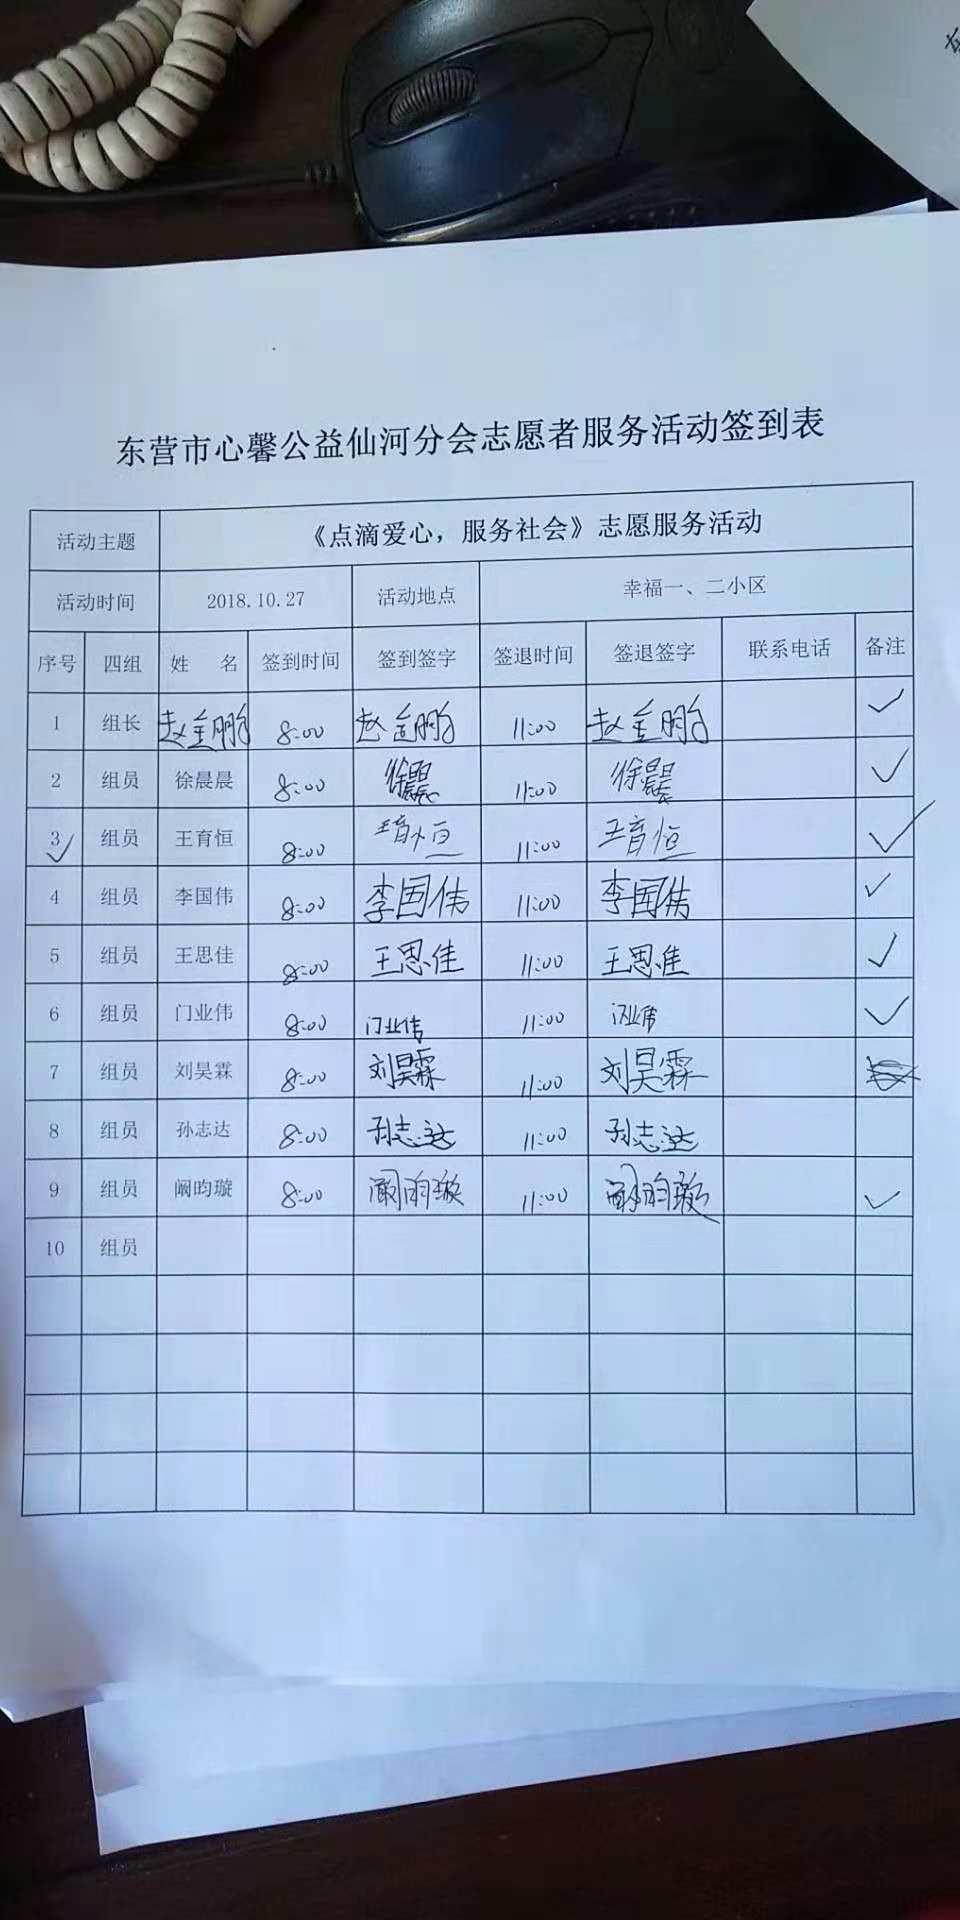 东营市心馨公益仙河分会志愿者服务活动签到表
活动主题 《点滴爱心，服务社会》志愿服务活动
活动时间 2018.10.27 活动地点 幸福一、二小区
序号 四组 姓 名 签到时间 签到签字 签退时间 签退签字 联系电话 备注
1 组长 赵金鹏 8:00 赵金鹏 11:00 赵金鹏 ✓
2 组员 徐晨晨 8:00 徐晨晨 11:00 徐晨晨 ✓
3 组员 王育恒 8:00 王育恒 11:00 王育恒 ✓
4 组员 李国伟 8:00 李国伟 11:00 李国伟 ✓
5 组员 王思佳 8:00 王思佳 11:00 王思佳 ✓
6 组员 门业伟 8:00 门业伟 11:00 门业伟 ✓
7 组员 刘昊霖 8:00 刘昊霖 11:00 刘昊霖
8 组员 孙志达 8:00 孙志达 11:00 孙志达
9 组员 阚昀璇 8:00 阚昀璇 11:00 阚昀璇 ✓
10 组员